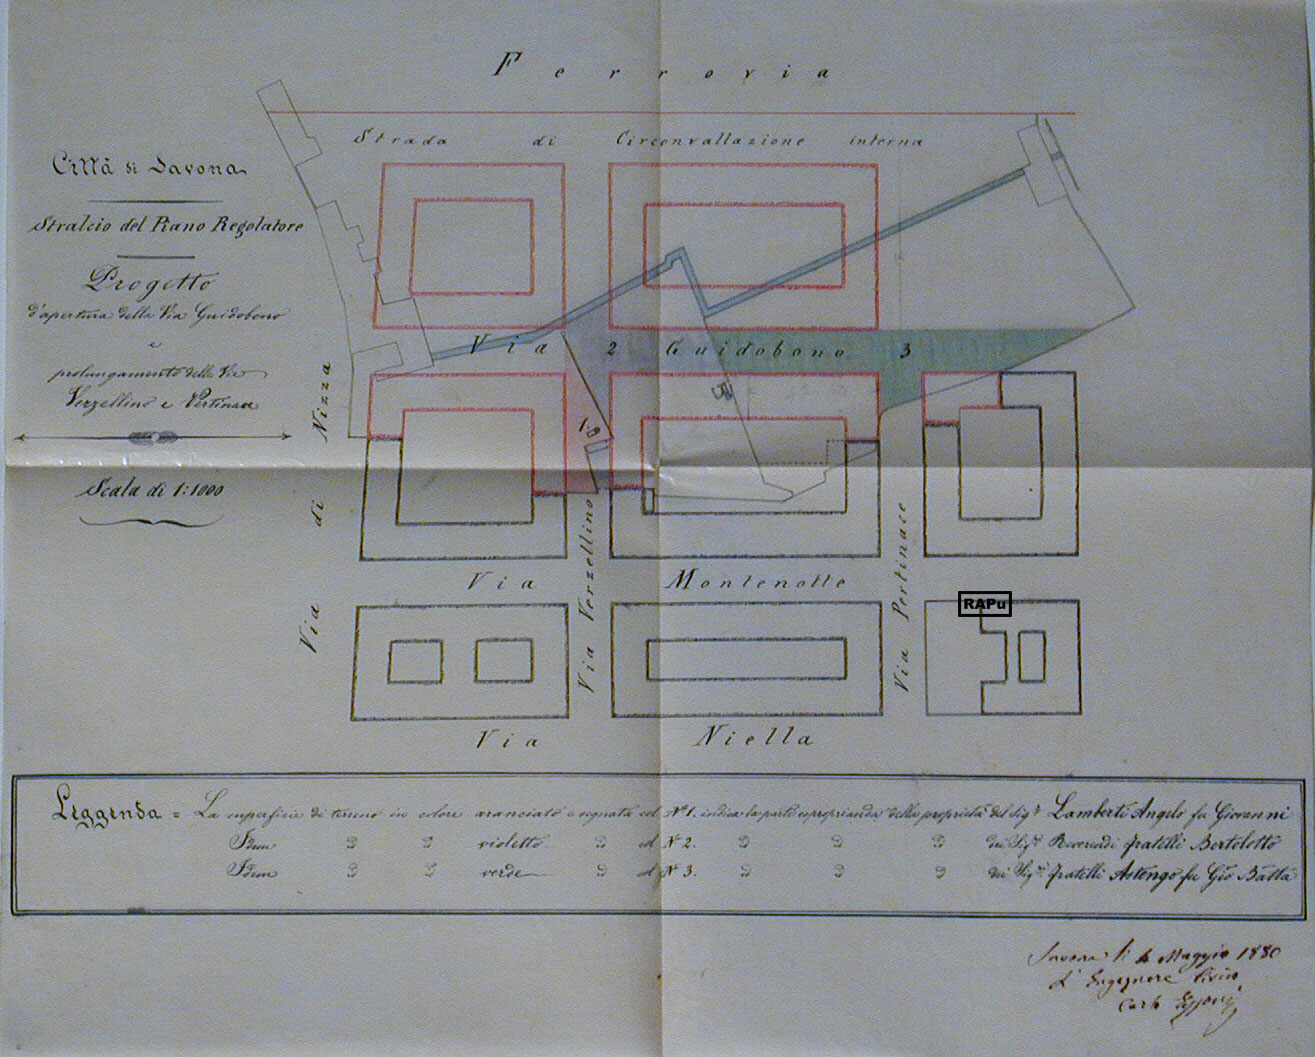 Ferrovia
Strada di Circonvallazione interna
Città di Savona
Stralcio del Piano Regolatore
Progetto
d'apertura della Via Guidobono
e
prolungamento delle Vie
Verzellino e Pertinace
Scala di 1:1000
Via di Nizza
Via 2 Guidobono 3
Via Verzellino
Via Pertinace
Via Montenotte
RAPu
Via Niella
Leggenda = La superficie di terreno in colore aranciato e segnata col Nº 1. indica la parte esproprianda della proprietà del Sigr Lamberti Angelo fu Giovanni
Idem violetto col Nº 2. dei Sigri Reverendi fratelli Bertolotto
Idem verde col Nº 3. dei Sigri fratelli Astengo fu Gio Batta
Savona li Maggio 1880
L'Ingegnere Civico
Carlo